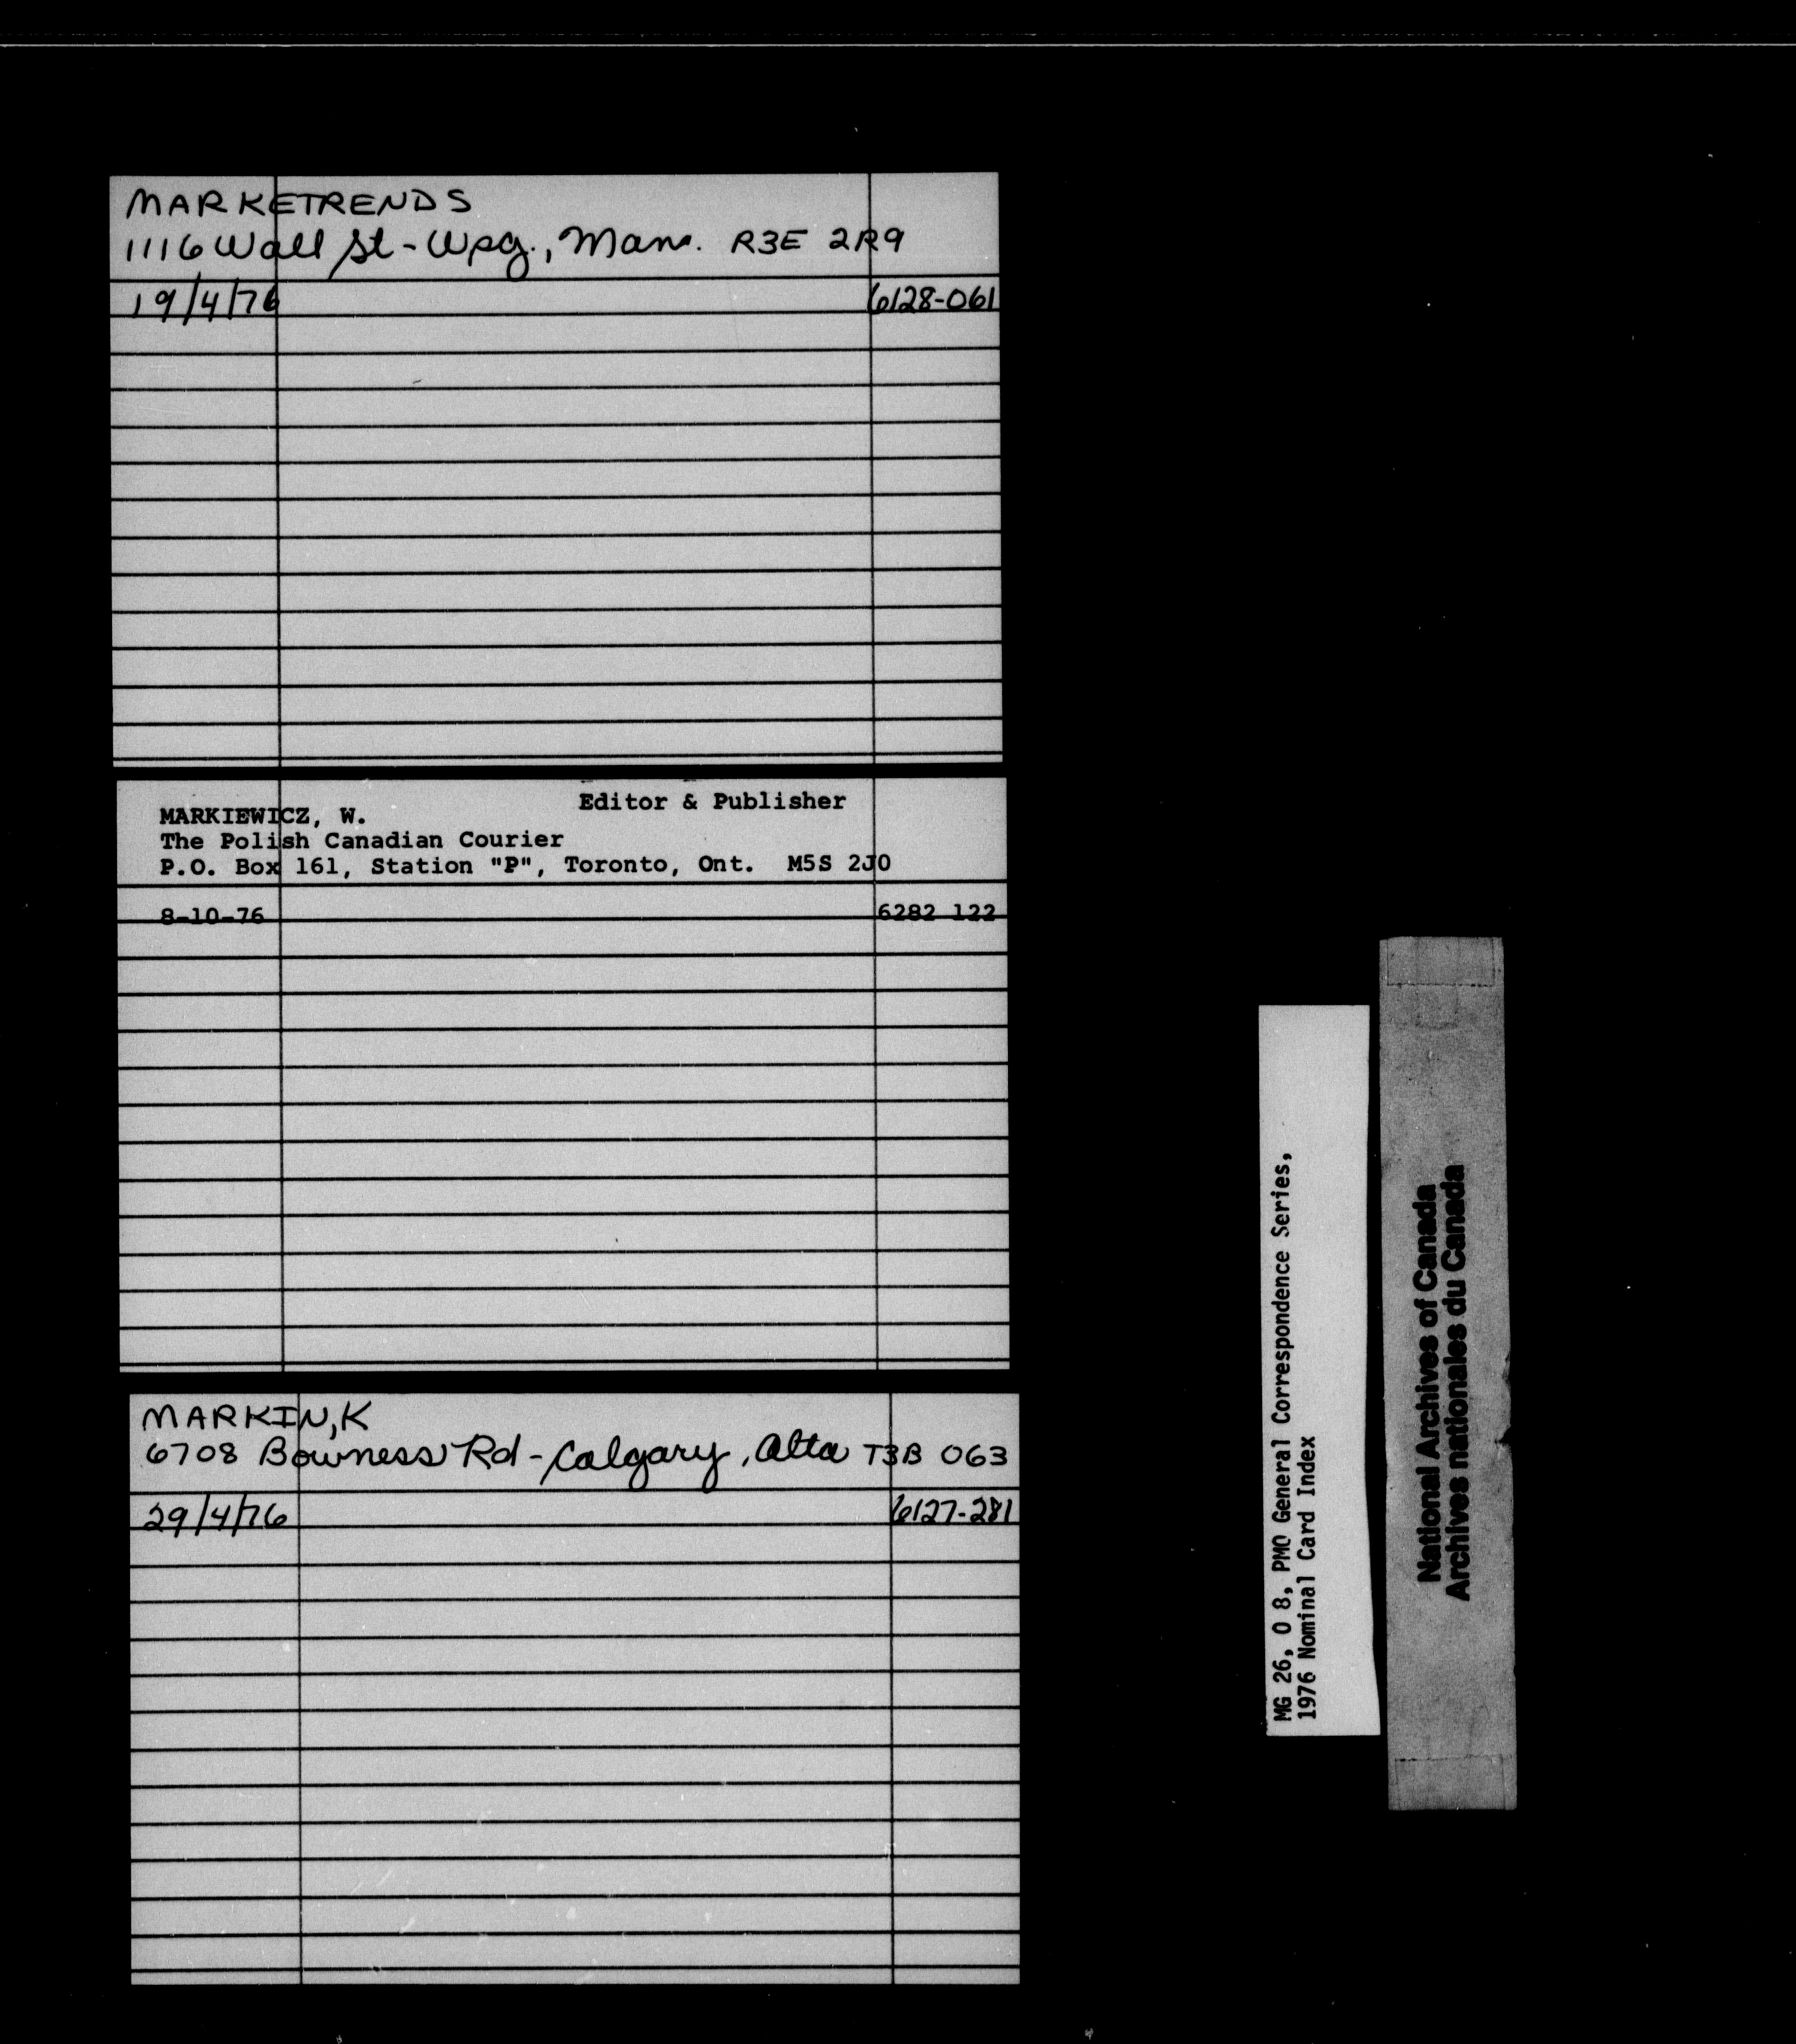 MARKETRENDS
1116 Wall St - Wpg., Man. R3E 2R9
19/4/76 6128-061
Editor & Publisher
MARKIEWICZ, W.
The Polish Canadian Courier
P.O. Box 161, Station "P", Toronto, Ont. M5S 2J0
8-10-76 6282 122
MARKIN, K
6708 Bowness Rd - Calgary, Alta T3B 063
29/4/76 6127-281
MG 26, O 8, PMO General Correspondence Series,
1976 Nominal Card Index
National Archives of Canada
Archives nationales du Canada